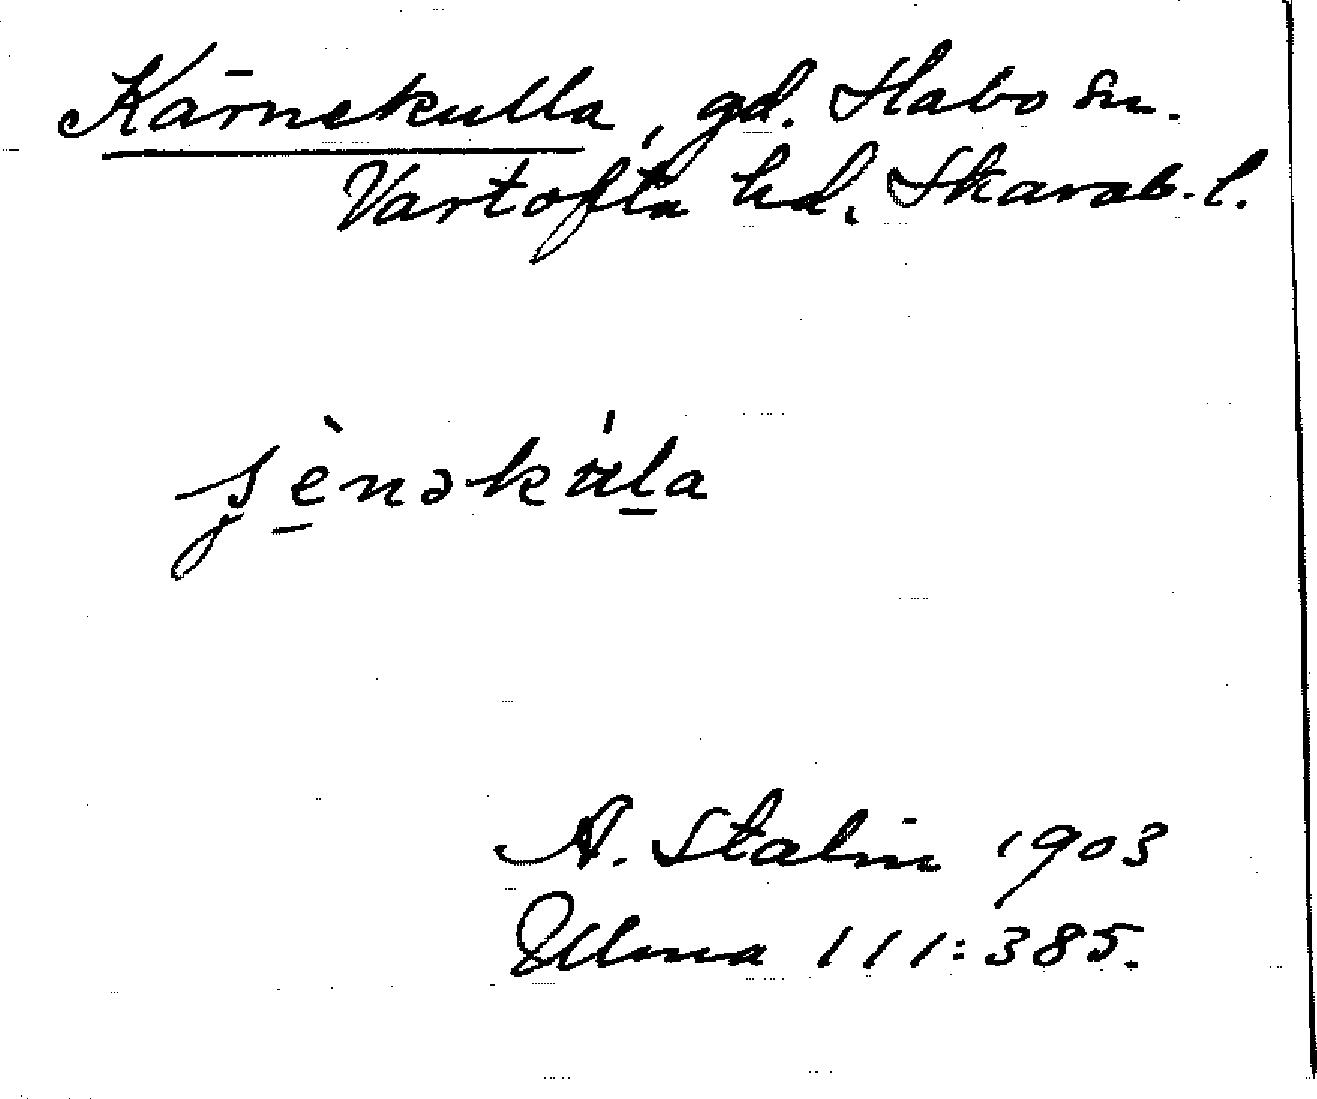 Kärnekulla, gd. Habo sn.
Vartofta hd. Skarab. l.
A. Stalin 1903
Ulma 111:385.